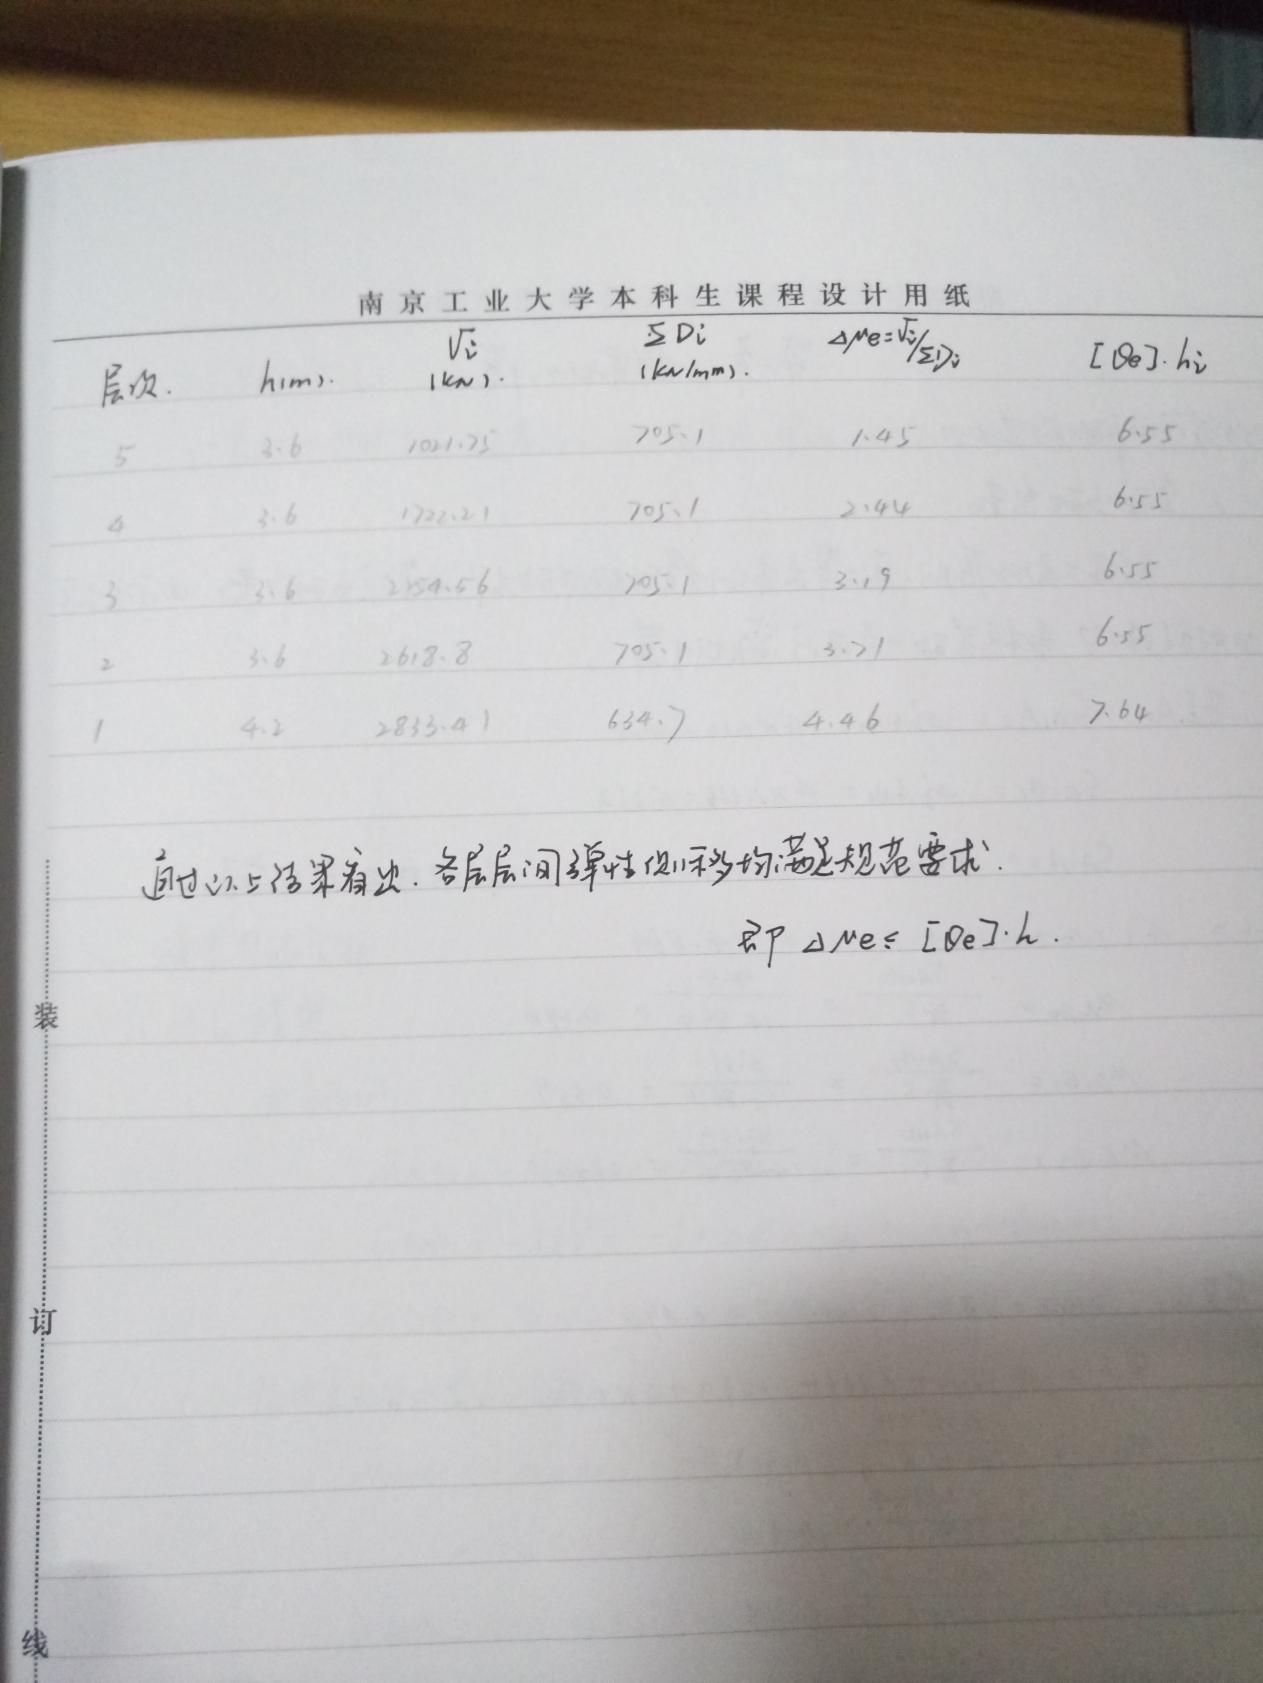 南京工业大学本科生课程设计用纸
层次. h(m). Vi (kN). ΣDi (kN/mm). Δμe=Vi/ΣDi [θe]·hi
5 3.6 1021.75 705.1 1.45 6.55
4 3.6 1722.21 705.1 2.44 6.55
3 3.6 2254.56 705.1 3.19 6.55
2 3.6 2618.8 705.1 3.71 6.55
1 4.2 2833.41 634.7 4.46 7.64
通过以上结果看出.各层层间弹性侧移均满足规范要求.
即 Δμe≤ [θe]·h.
装
订
线